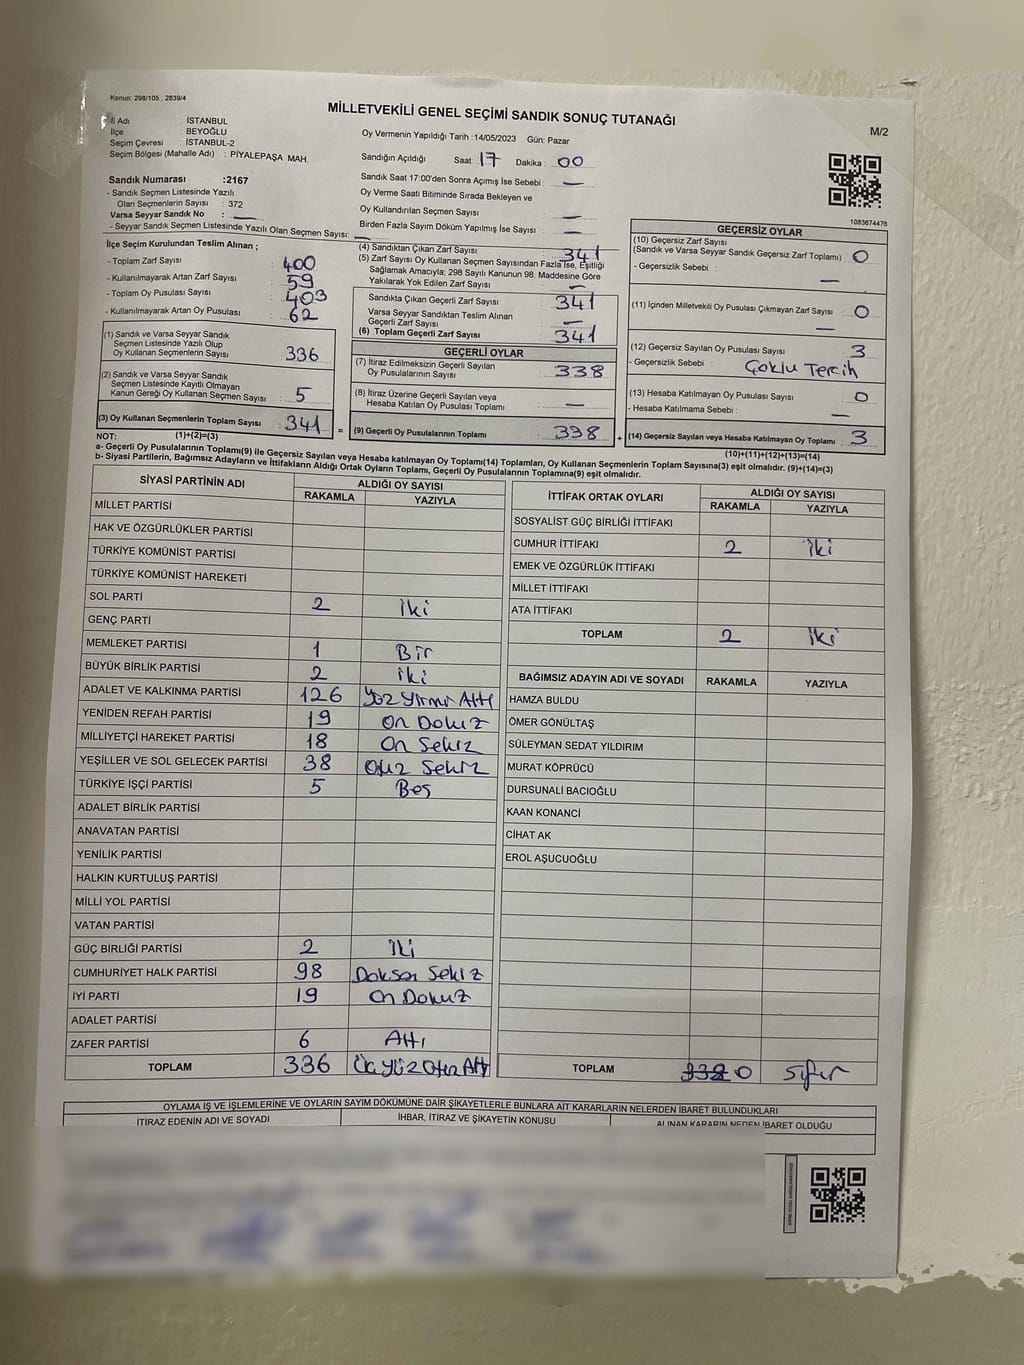 Kanun: 298/105 , 2839/4
MİLLETVEKİLİ GENEL SEÇİMİ SANDIK SONUÇ TUTANAĞI
M/2
İl Adı : İSTANBUL
İlçe : BEYOĞLU
Seçim Çevresi : İSTANBUL-2
Seçim Bölgesi (Mahalle Adı) : PİYALEPAŞA MAH.
Sandık Numarası :2167
- Sandık Seçmen Listesinde Yazılı
Olan Seçmenlerin Sayısı : 372
Varsa Seyyar Sandık No : —
- Seyyar Sandık Seçmen Listesinde Yazılı Olan Seçmen Sayısı: —
Oy Vermenin Yapıldığı Tarih :14/05/2023 Gün: Pazar
Sandığın Açıldığı Saat: 17 Dakika : 00
Sandık Saat 17:00'den Sonra Açımış İse Sebebi : —
Oy Verme Saati Bitiminde Sırada Bekleyen ve
Oy Kullandırılan Seçmen Sayısı : —
Birden Fazla Sayım Döküm Yapılmış İse Sayısı : —
1083674476
İlçe Seçim Kurulundan Teslim Alınan ;
- Toplam Zarf Sayısı : 400
- Kullanılmayarak Artan Zarf Sayısı : 59
- Toplam Oy Pusulası Sayısı : 403
- Kullanılmayarak Artan Oy Pusulası : 62
(1) Sandık ve Varsa Seyyar Sandık
Seçmen Listesinde Yazılı Olup
Oy Kullanan Seçmenlerin Sayısı : 336
(2) Sandık ve Varsa Seyyar Sandık
Seçmen Listesinde Kayıtlı Olmayan
Kanun Gereği Oy Kullanan Seçmen Sayısı : 5
(3) Oy Kullanan Seçmenlerin Toplam Sayısı : 341
(1)+(2)=(3)
(4) Sandıktan Çıkan Zarf Sayısı : 341
(5) Zarf Sayısı Oy Kullanan Seçmen Sayısından Fazla İse, Eşitliği
Sağlamak Amacıyla; 298 Sayılı Kanunun 98. Maddesine Göre
Yakılarak Yok Edilen Zarf Sayısı : —
Sandıkta Çıkan Geçerli Zarf Sayısı : 341
Varsa Seyyar Sandıktan Teslim Alınan
Geçerli Zarf Sayısı : —
(6) Toplam Geçerli Zarf Sayısı : 341
GEÇERLİ OYLAR
(7) İtiraz Edilmeksizin Geçerli Sayılan
Oy Pusulalarının Sayısı : 338
(8) İtiraz Üzerine Geçerli Sayılan veya
Hesaba Katılan Oy Pusulası Toplamı : —
= (9) Geçerli Oy Pusulalarının Toplamı : 338 +
GEÇERSİZ OYLAR
(10) Geçersiz Zarf Sayısı
(Sandık ve Varsa Seyyar Sandık Geçersiz Zarf Toplamı) : 0
- Geçersizlik Sebebi : —
(11) İçinden Milletvekili Oy Pusulası Çıkmayan Zarf Sayısı : 0
—
(12) Geçersiz Sayılan Oy Pusulası Sayısı : 3
- Geçersizlik Sebebi : Çoklu Tercih
(13) Hesaba Katılmayan Oy Pusulası Sayısı : 0
- Hesaba Katılmama Sebebi : —
(14) Geçersiz Sayılan veya Hesaba Katılmayan Oy Toplamı : 3
(10)+(11)+(12)+(13)=(14)
NOT:
a- Geçerli Oy Pusulalarının Toplamı(9) ile Geçersiz Sayılan veya Hesaba katılmayan Oy Toplamı(14) Toplamları, Oy Kullanan Seçmenlerin Toplam Sayısına(3) eşit olmalıdır. (9)+(14)=(3)
b- Siyasi Partilerin, Bağımsız Adayların ve İttifakların Aldığı Ortak Oyların Toplamı, Geçerli Oy Pusulalarının Toplamına(9) eşit olmalıdır.
SİYASİ PARTİNİN ADI ALDIĞI OY SAYISI
RAKAMLA YAZIYLA
MİLLET PARTİSİ
HAK VE ÖZGÜRLÜKLER PARTİSİ
TÜRKİYE KOMÜNİST PARTİSİ
TÜRKİYE KOMÜNİST HAREKETİ
SOL PARTİ 2 iki
GENÇ PARTİ
MEMLEKET PARTİSİ 1 Bir
BÜYÜK BİRLİK PARTİSİ 2 iki
ADALET VE KALKINMA PARTİSİ 126 Yüz Yirmi Altı
YENİDEN REFAH PARTİSİ 19 On Dokuz
MİLLİYETÇİ HAREKET PARTİSİ 18 On Sekiz
YEŞİLLER VE SOL GELECEK PARTİSİ 38 Otuz Sekiz
TÜRKİYE İŞÇİ PARTİSİ 5 Beş
ADALET BİRLİK PARTİSİ
ANAVATAN PARTİSİ
YENİLİK PARTİSİ
HALKIN KURTULUŞ PARTİSİ
MİLLİ YOL PARTİSİ
VATAN PARTİSİ
GÜÇ BİRLİĞİ PARTİSİ 2 İki
CUMHURİYET HALK PARTİSİ 98 Doksan Sekiz
İYİ PARTİ 19 On Dokuz
ADALET PARTİSİ
ZAFER PARTİSİ 6 Altı
TOPLAM 336 Üç Yüz Otuz Altı
İTTİFAK ORTAK OYLARI ALDIĞI OY SAYISI
RAKAMLA YAZIYLA
SOSYALİST GÜÇ BİRLİĞİ İTTİFAKI
CUMHUR İTTİFAKI 2 iki
EMEK VE ÖZGÜRLÜK İTTİFAKI
MİLLET İTTİFAKI
ATA İTTİFAKI
TOPLAM 2 iki
BAĞIMSIZ ADAYIN ADI VE SOYADI RAKAMLA YAZIYLA
HAMZA BULDU
ÖMER GÖNÜLTAŞ
SÜLEYMAN SEDAT YILDIRIM
MURAT KÖPRÜCÜ
DURSUNALİ BACIOĞLU
KAAN KONANCİ
CİHAT AK
EROL AŞUCUOĞLU
TOPLAM 338 0 Sıfır
OYLAMA İŞ VE İŞLEMLERİNE VE OYLARIN SAYIM DÖKÜMÜNE DAİR ŞİKAYETLERLE BUNLARA AİT KARARLARIN NELERDEN İBARET BULUNDUKLARI
İTİRAZ EDENİN ADI VE SOYADI İHBAR, İTİRAZ VE ŞİKAYETİN KONUSU ALINAN KARARIN NEDEN İBARET OLDUĞU